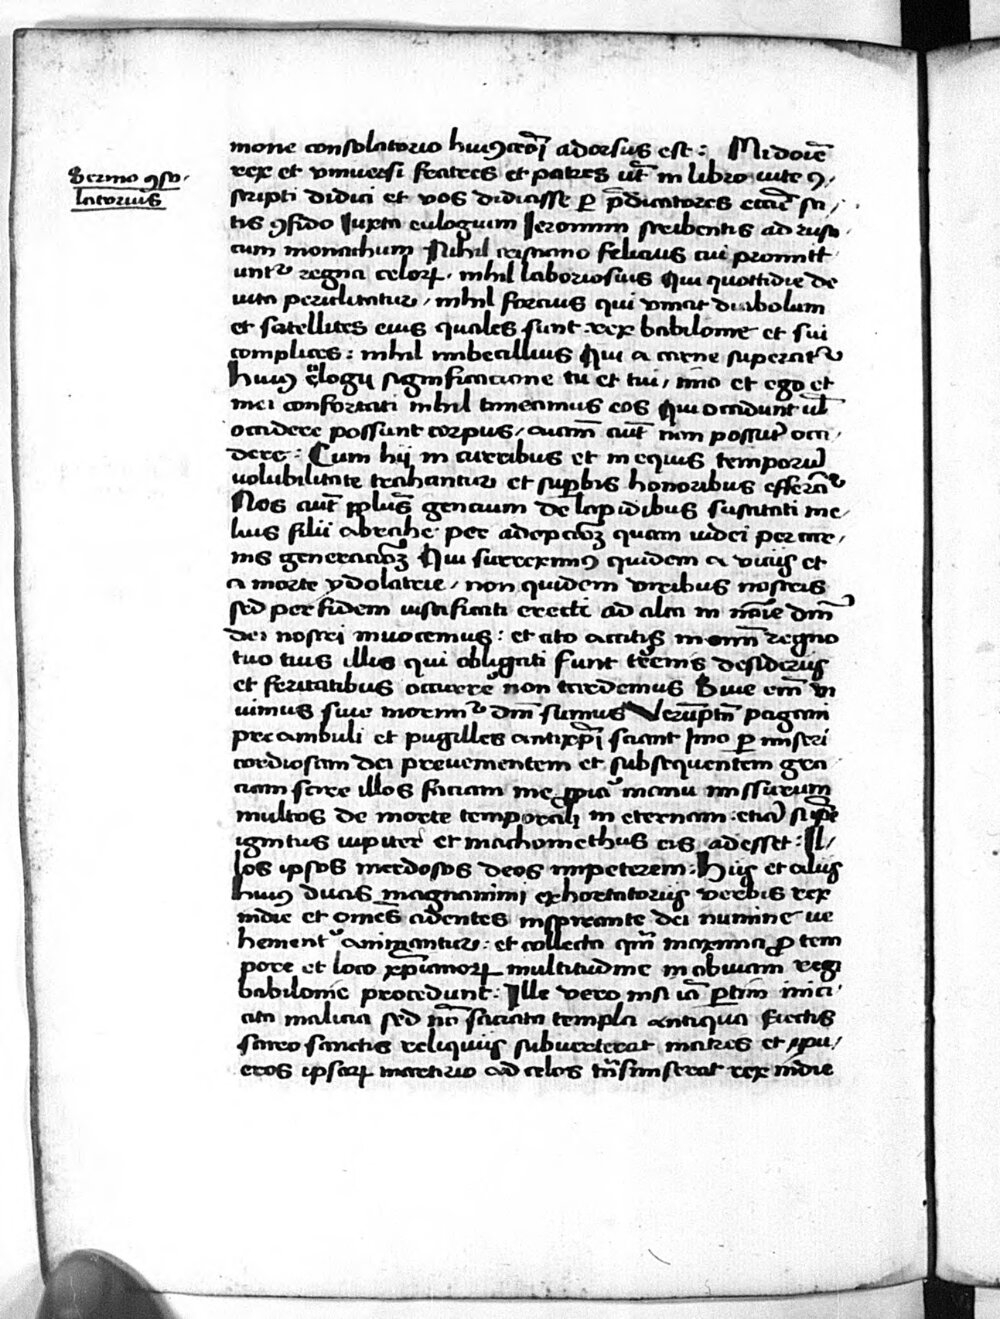 Sermo ꝯso-
latorius
mone consolatorio huiꝰcemodi adorsus est : Mi domine
rex et vniuersi fratres et patres vt in libro vite ꝯ-
scripti didici et vos didicisse ꝑ p̄dicatores etiam sa-
tis ꝯfido Iuxta eulogium Ieronimi scribentis ad rusti
cum monachum Nihil cristiano felicius cui promitt
untᷣ regna celoꝝ . nihil laboriosius Qui quottidie de
uita periclitatur / nihil forcius qui vincit diabolum
et satellites eius quales sunt . rex babilonie et sui
complices : nihil imbecillius Qui a carne superatᷣ
huiꝰ elogii significacione tu et tui / imo et ego et
mei confortati nihil timeamus eos Qui occidunt ul̄
occidere possunt corpus / animam aut̄ non possunt occi-
dere : Cum hij in curribus et in equis temporum
volubilitate trahantur et superbis honoribus efferantᷣ
Nos aut̄ pplus̄ gencium de lapidibus suscitati me-
lius filii abrahe per adopcōꝫ quam iudei per car-
nis generacōꝫ Qui surreximꝰ quidem a vicijs et
a morte ydolatrie / non quidem viribus nostris
sed per fidem iustificati erecti ad alta in nōie dn̄i
dei nostri inuocemus : et cito accitis in omni regno
tuo tuis illis qui obligati sunt terrenis desiderijs
et feritatibus occurrere non tardemus Siue em̄ vi
uimus siue morimᷣ dn̄i sumus Verūptn̄ pagani
preambuli et pugilles antixp̄i sciant Imo ꝑ miseri
cordiosam dei preuenientem et subsequentem gra
ciam scire illos faciam me ꝓpria manu missurum
multos de morte temporali in eternam . etiam si per
ignitus iupiter et machomethus eis adesset : Il-
los ipsos merdosos deos impeterem . Hijs et alijs
huiꝰ ducis magnanimi exhortatorijs verbis rex
indie et omēs adentes inspirante dei numine ve
hementᷣ animantur : et collecta qm̄ maxima ꝓ tem
pore et loco xp̄ianoꝝ multitudine in obuiam regi
babilonie procedunt : Ille vero nisi iā ꝑtim inici-
ata malicia sed nō saciata templa antiqua erectis
sacro sanctis reliquijs subuerterat matres et pu-
eros ipsaꝝ martirio ad celos trn̄smiserat rex indie